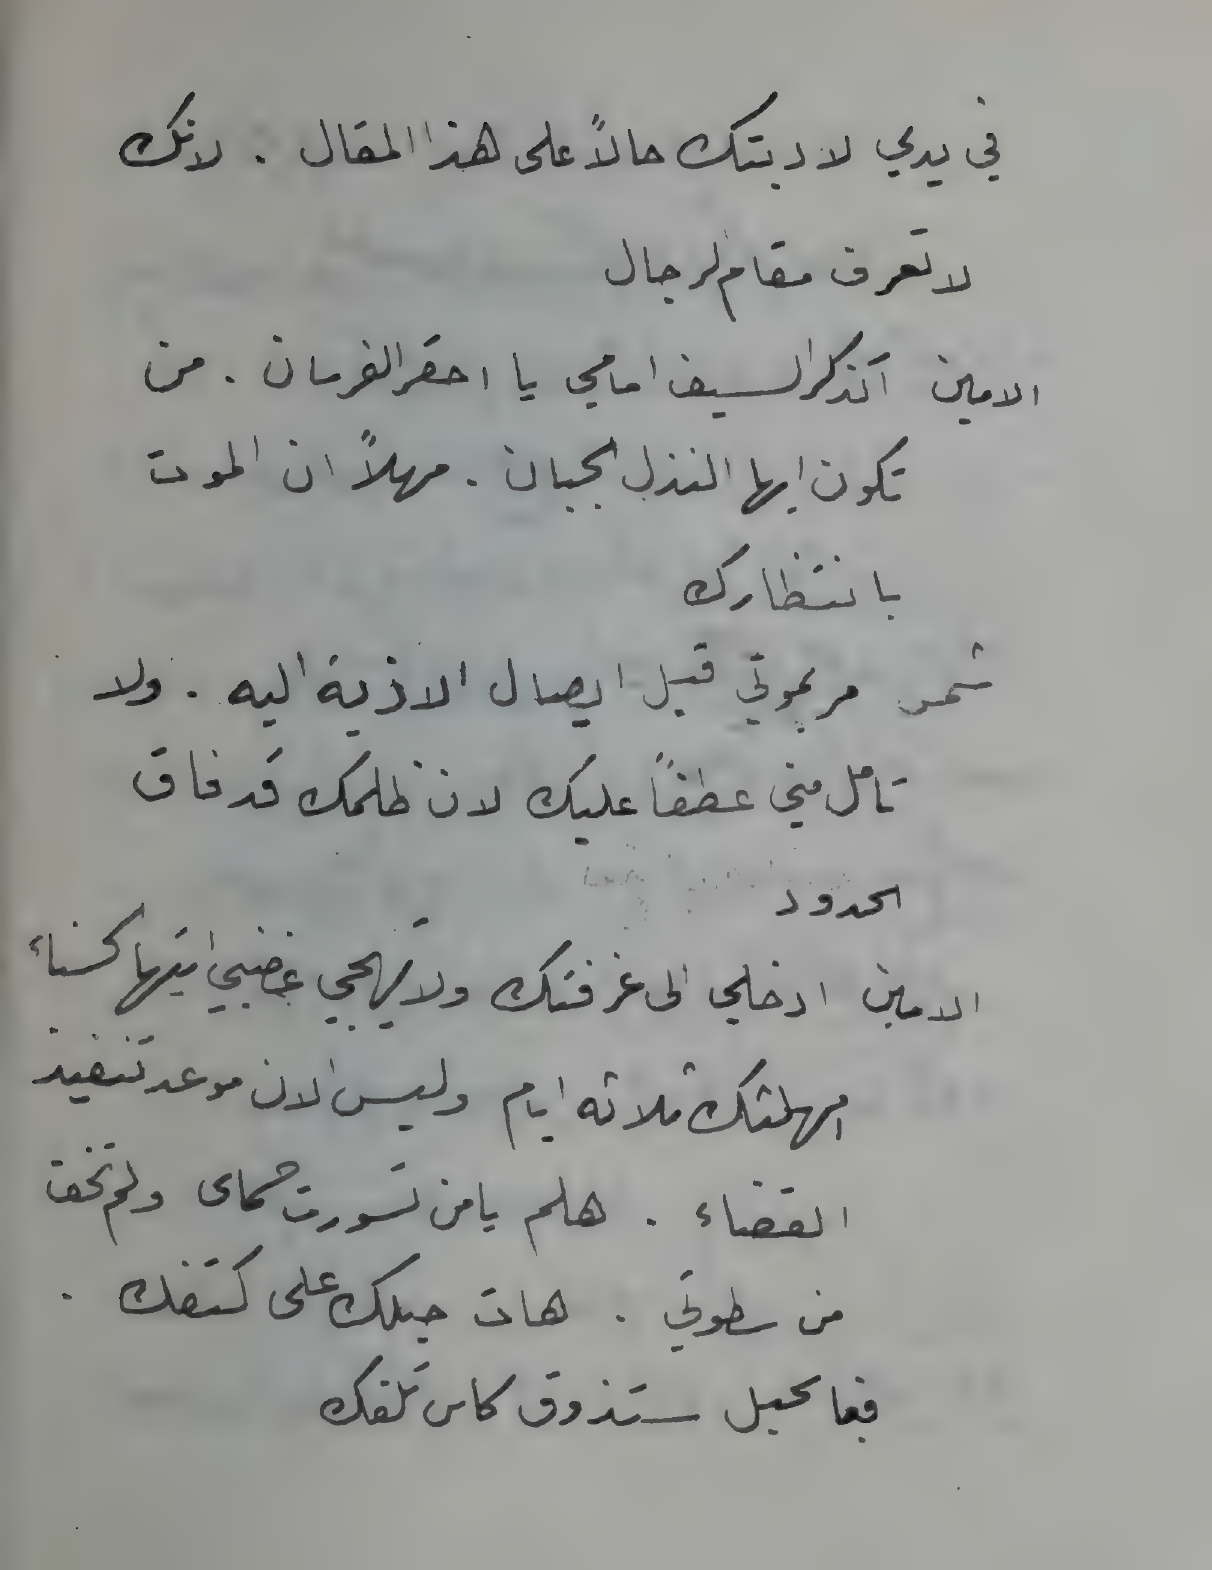 في يدي لادبتك حالاً على هذا المقال . لانك
لا تعرف مقام الرجال
الامين اتذكر السيف امامي يا احقر الفرسان . من
تكون ايها النذل الجبان . مهلاً ان الموت
بانتظارك
شمس مر بموتي قبل ايصال الاذية اليه . ولا
تامل مني عطفاً عليك لان ظلمك قد فاق
الحدود
الامين ادخلي الى غرفتك ولا تهيجي غضبي ايتها الحسناء
امهلتك ثلاثه ايام وليس الان موعد تنفيذ
القضاء . هلم يا من تسورت حماى ولم تخف
من سطوتي . هات حيلك على كتفك .
فعما قليل ستذوق كاس تلفك